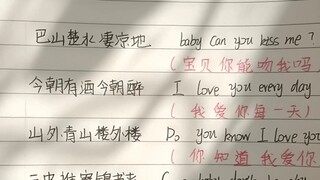 巴山楚水凄凉地 baby can you kiss me ?
(宝贝你能吻我吗
今朝有酒今朝醉 I love you every day
(我爱你每一天)
山外青山楼外楼 Do you know I love you
(你知道我爱你